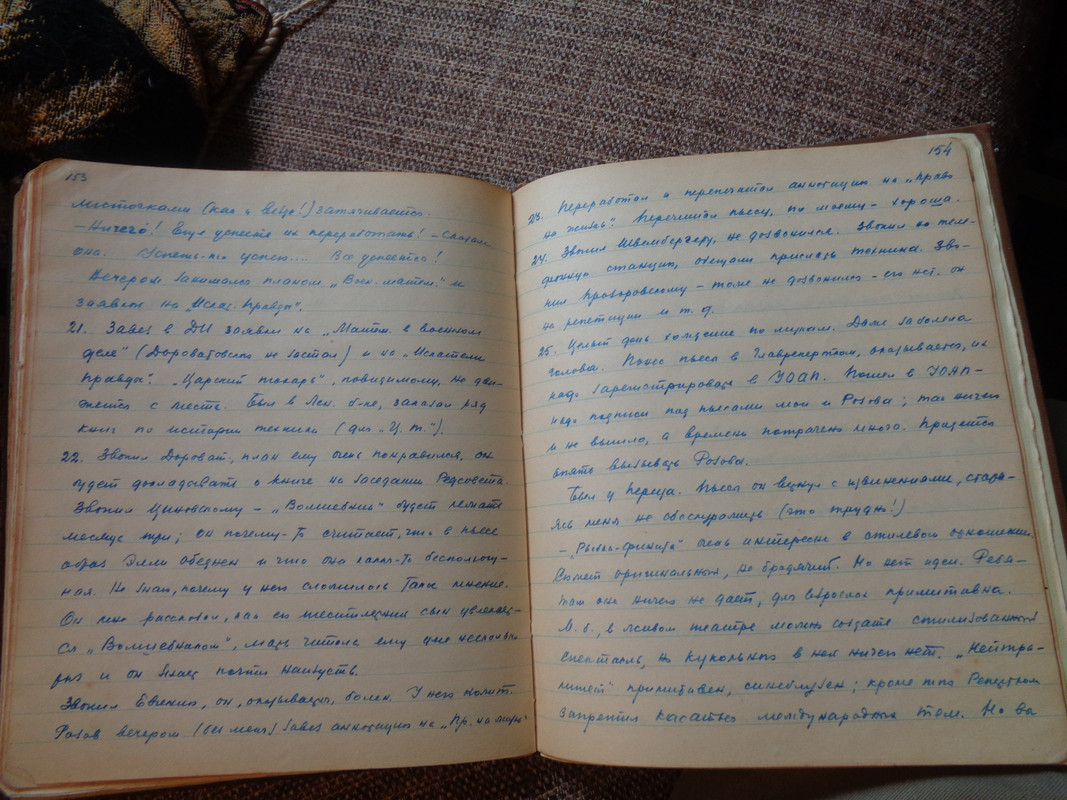 153
листочками (как и везде!) заканчивается.
– Ничего! Еще успеете их переработать! – сказала
она. Успеть-то успею... Все успеется!
Вечером занимался планом „Воен. матем." и
заявкой на „Искат. правды".
21. Завез в ДИ заявки на „Матем. в военном
деле" (Дороватовского не застал) и на „Искатели
правды". „Царский токарь", повидимому, не дви-
жется с места. Был в Лен. б-ке, заказал ряд
книг по истории техники (для „Ц. т.").
22. Звонил Дороват., план ему очень понравился, он
будет докладывать о книге на заседании Редсовета.
Звонил Циновскому – „Волшебник" будет печат.
месяца три; он почему-то считает, что в пьесе
образ Элли обеднен и что она какая-то беспомощ-
ная. Не знаю, почему у него сложилось такое мнение.
Он мне рассказал, как его шестилетний сын увлекает-
ся „Волшебником", мать читала ему уже несколько
раз и он знает почти наизусть.
Звонил Евгению, он, оказывается, болен. У него колит.
Розов вечером (без меня) завез аннотацию на „Пр. на жизнь"
154
23. Переработал и перепечатал аннотацию на „Право
на жизнь". Перечитал пьесу, по моему – хороша.
24. Звонил Швембергеру, не дозвонился. Звонил на теле-
фонную станцию, обещали прислать техника. Зво-
нил Проворовскому – тоже не дозвонился – его нет, он
на репетиции и т. д.
25. Целый день хождение по мукам. Даже заболела
голова. Понес пьесы в Главрепертком, оказывается, их
надо зарегистрировать в УОАП. Пошел в УОАП –
надо подписи под пьесами мои и Розова; так ничего
и не вышло, а времени потрачено много. Придется
опять вызывать Розова.
Был у Переца. Пьесы он вернул с извинениями, стара-
ясь меня не обескуражить (это трудно!)
– „Рыбка-финита" очень интересна в стилевом отношении.
Сюжет оригинальный, не бродячий. Но нет идеи. Ребя-
там она ничего не дает, для взрослых примитивна.
М. б., в живом театре можно создать стилизованный
спектакль, но кукольного в ней ничего нет. „Нейтра-
литет" примитивен, ; кроме того Репертком
запретил касаться международных тем. Но вы